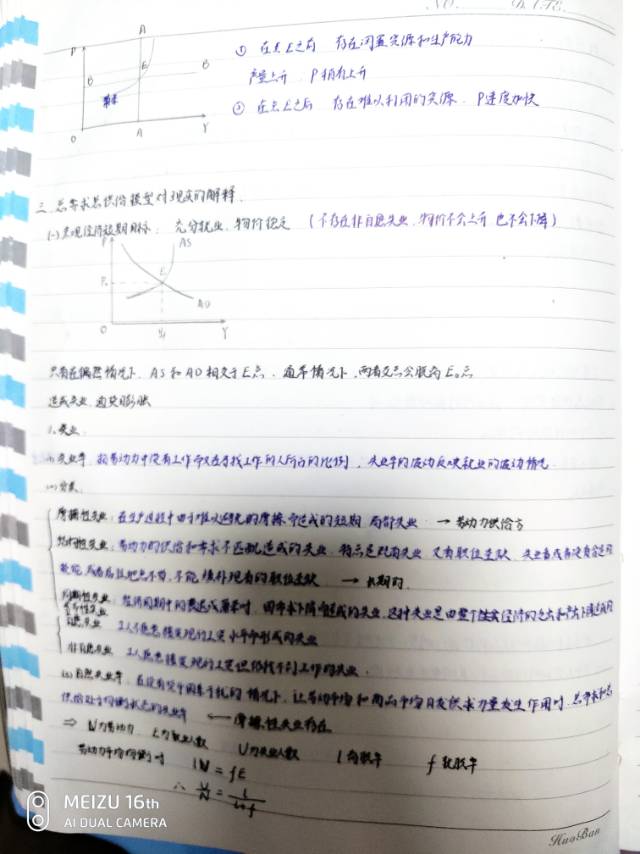 NO. DATE.
P A
① 在点E之前 存在闲置资源和生产能力
B E B
产量上升 P稍有上升
② 在点E之后 存在难以利用的资源. P速度加快
O A Y
三. 总需求总供给模型对现实的解释.
(一) 宏观经济短期目标: 充分就业, 物价稳定 (不存在非自愿失业, 物价不会上升 也不会下降)
P AS
E
P₀
AD
O Y
只有在偶然情况下. AS和AD相交于E点. 通常情况下, 两者交点会脱离E。点
造成失业, 通货膨胀
1. 失业
失业率: 指劳动力中没有工作而又在寻找工作的人所占的比例, 失业率的波动反映就业的波动情况
分类
摩擦性失业: 在生产过程中由于难以避免的摩擦而造成的短期 局部失业 → 劳动力供给方
结构性失业: 劳动力的供给和需求不匹配造成的失业. 特点是既有失业 又有职位空缺 失业者或者没有合适的
技能, 或者居住地点不当, 不能填补现有的职位空缺 → 长期的.
周期性失业: 经济周期中的衰退或萧条时. 因需求下降而造成的失业, 这种失业是由整个经济的支出和产出下降造成的
自愿失业 工人不愿意接受现行工资水平而形成的失业
非自愿失业 工人愿意接受现行工资但仍找不到工作的失业.
自然失业率. 在没有货币因素干扰的情况下. 让劳动市场和商品市场自发供求力量发生作用时. 总需求和总
供给处于均衡状态的失业率 ← 摩擦性失业存在
⇒ N为劳动力 E为就业人数 U为失业人数 l离职率 f就职率
劳动力市场均衡时 lU = fE
∴ U/N = l/(l+f)
MEIZU 16th
AI DUAL CAMERA
HuoBan